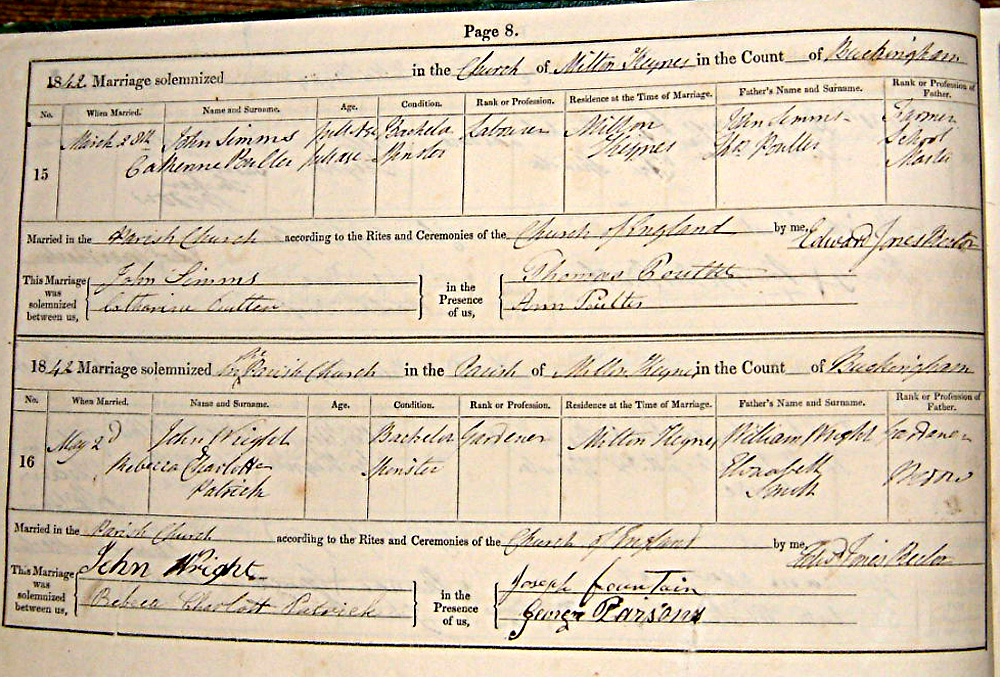 Page 8.
1842 Marriage solemnized in the Church of Milton Keynes in the Count of Buckingham
No. When Married. Name and Surname. Age. Condition. Rank or Profession. Residence at the Time of Marriage. Father's Name and Surname. Rank or Profession of Father.
15 March 28th John Simms full age Bachelor Labourer Milton John Simms Farmer
Catherine Poulter full age Keynes Thos Poulter School
Master
Married in the Parish Church according to the Rites and Ceremonies of the Church of England by me, Edward Jones
This Marriage was solemnized between us,
John Simms
Catharine Poulter
in the Presence of us,
Thomas Poulter
Ann Poulter
1842 Marriage solemnized in the Parish Church in the Parish of Milton Keynes in the Count of Buckingham
No. When Married. Name and Surname. Age. Condition. Rank or Profession. Residence at the Time of Marriage. Father's Name and Surname. Rank or Profession of Father.
16 May 2d John Wright Bachelor Gardener Milton Keynes William Wright Gardener
Rebecca Charlotte Elizabeth
Patrick Smith
Married in the Parish Church according to the Rites and Ceremonies of the Church of England by me, Jones
This Marriage was solemnized between us,
John Wright
Rebeca Charlott Patrick
in the Presence of us,
Joseph Fountain
George Parsons